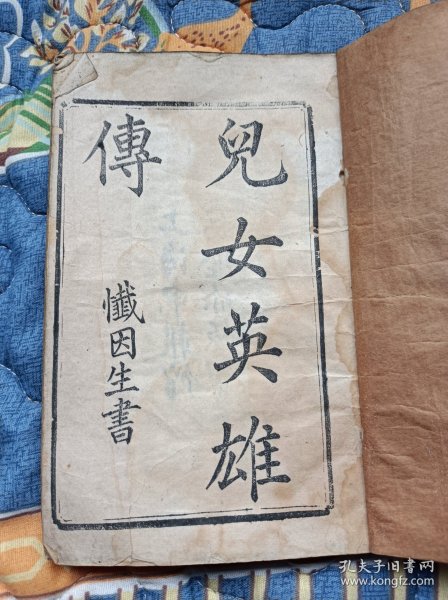 兒女英雄
傳
懺因生書
孔夫子旧书网
www.kongfz.com